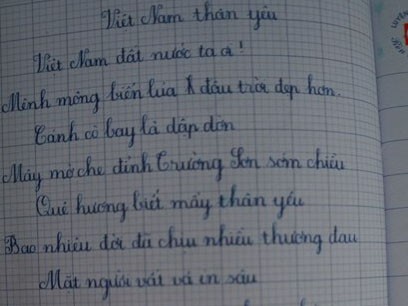 Việt Nam thân yêu
Việt Nam đất nước ta ơi!
Mênh mông biển lúa đâu trời đẹp hơn.
Cánh cò bay lả dập dờn
Mây mờ che đỉnh Trường Sơn sớm chiều
Quê hương biết mấy thân yêu
Bao nhiêu đời đã chịu nhiều thương đau
Mặt người vất vả in sâu